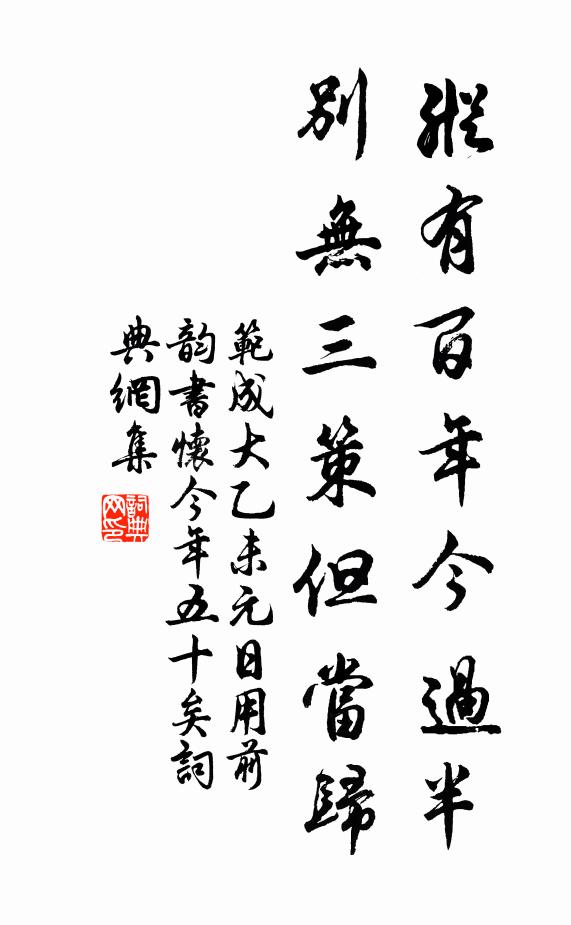 縱有百年今過半
別無三策但當歸
範成大乙未元日用前
韵書懷今年五十矣詞
典網集
詞典网印